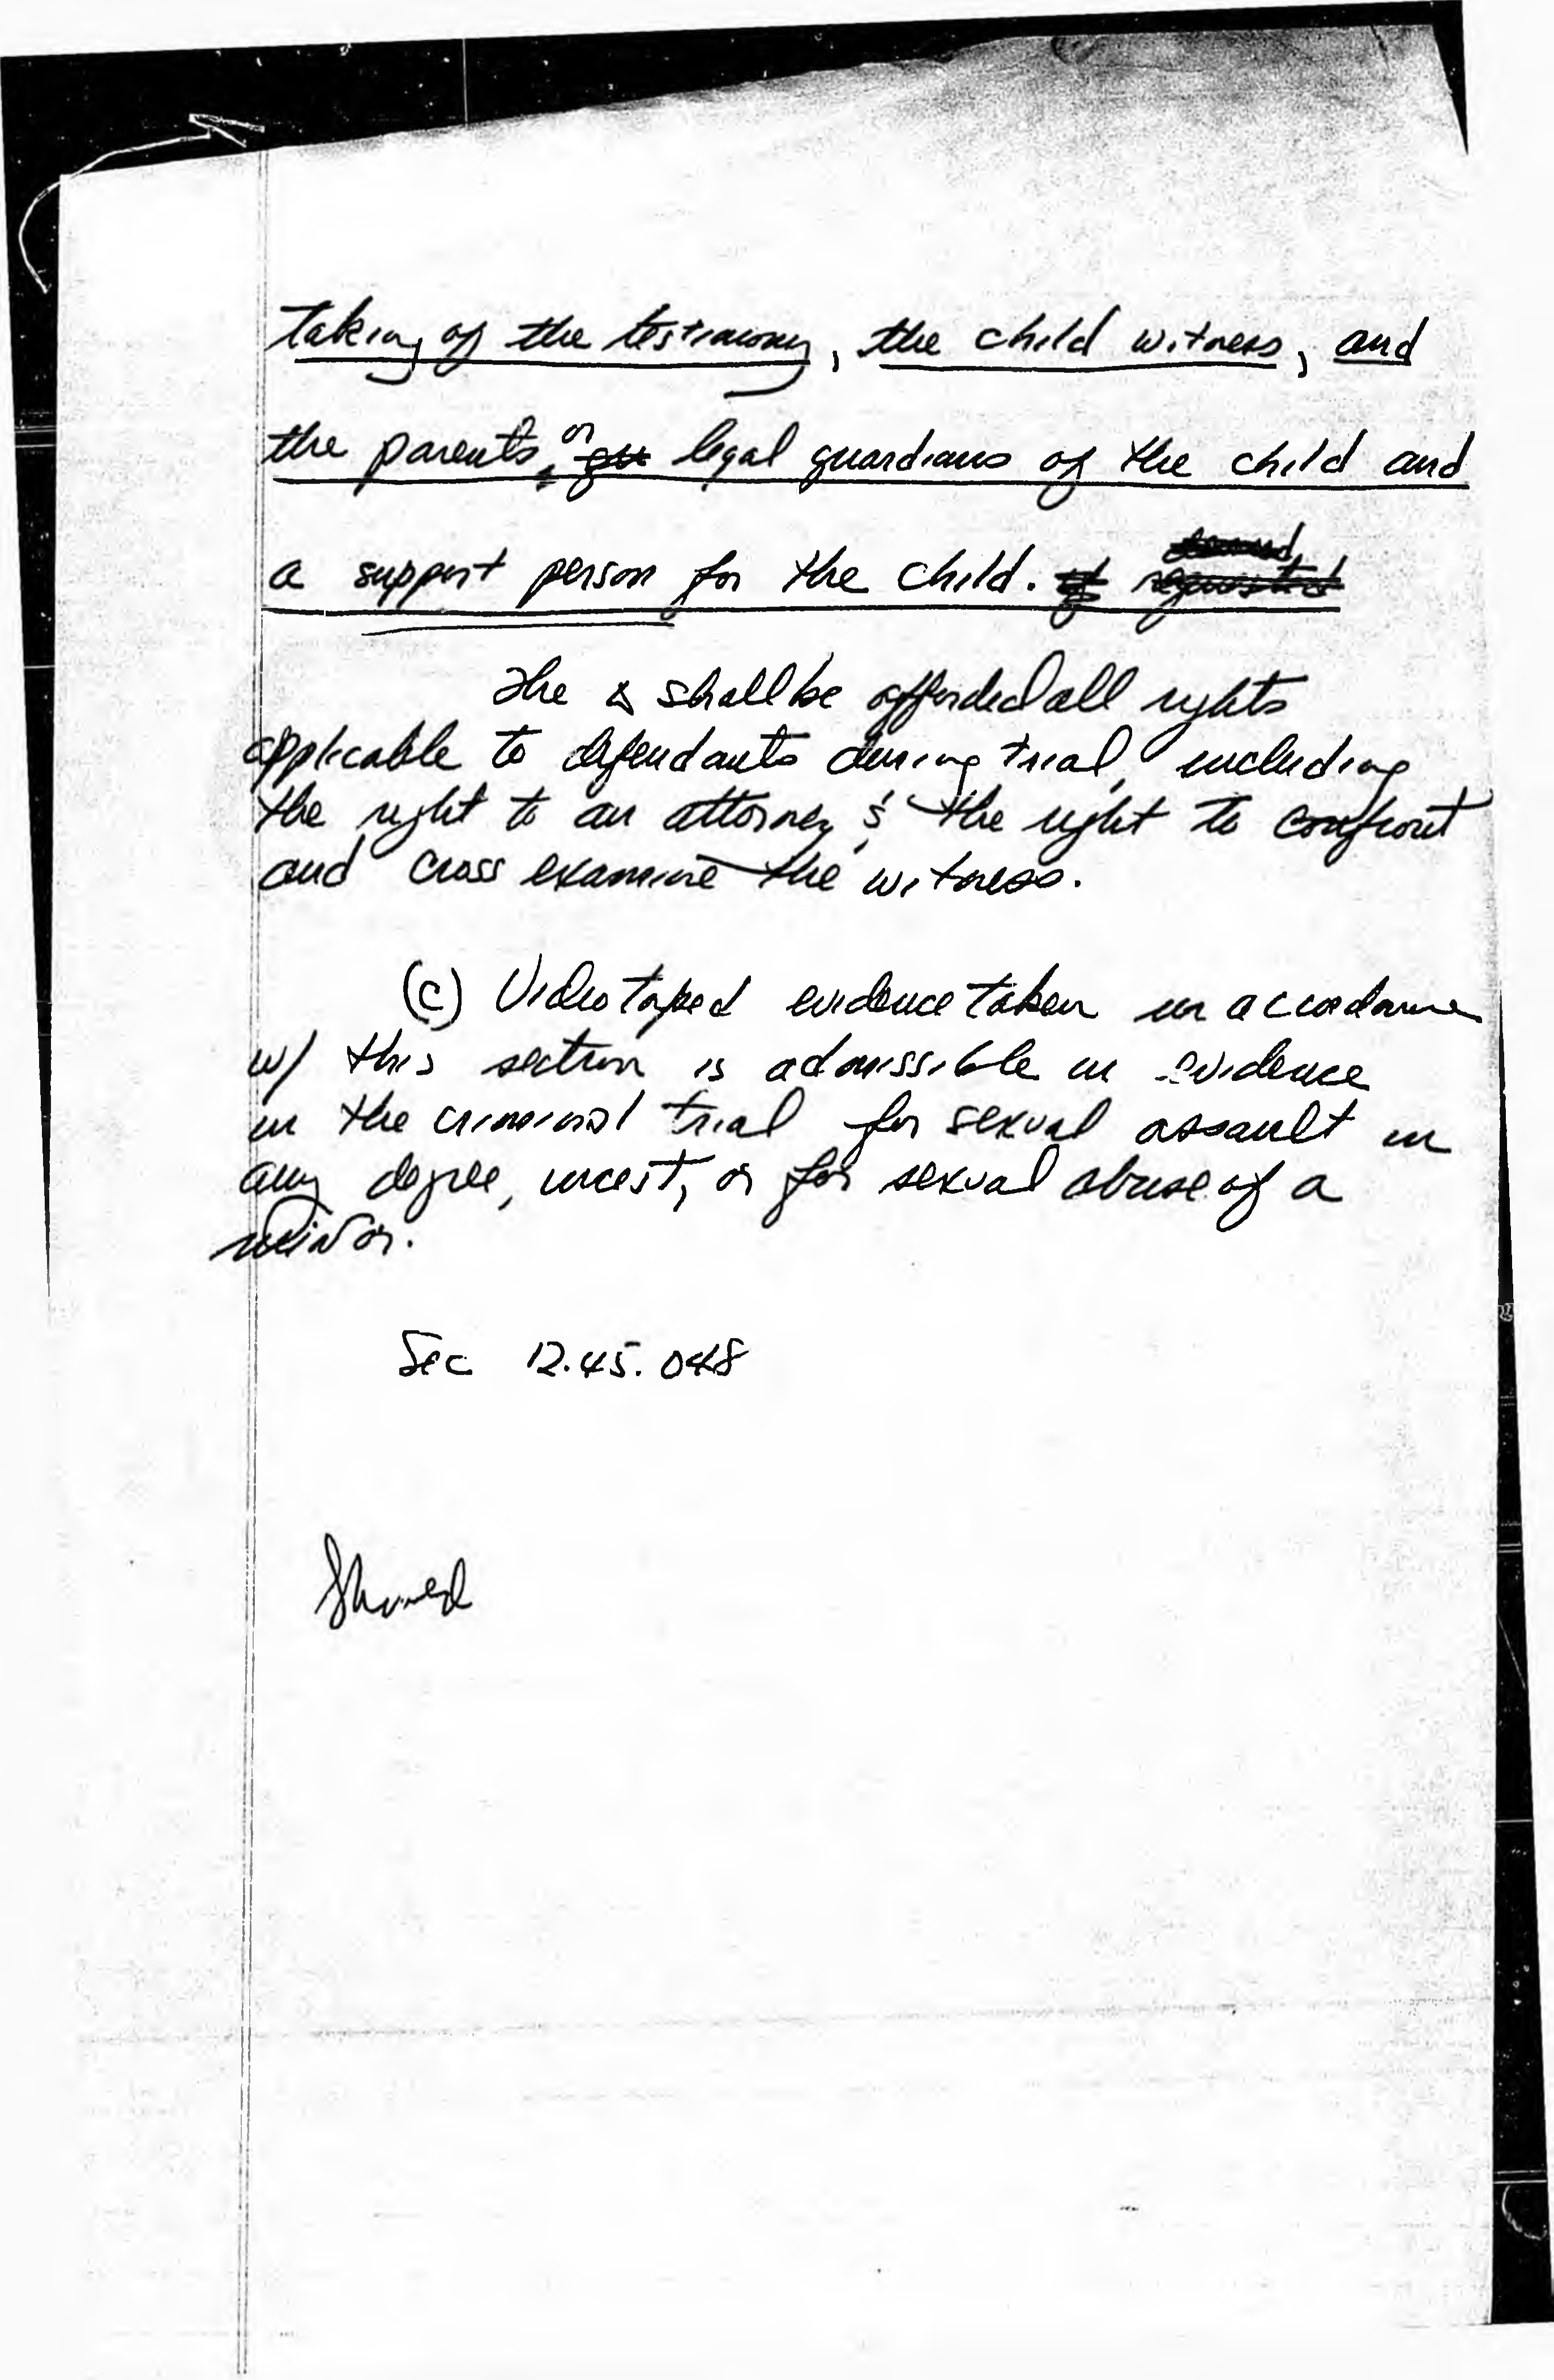 taking of the testimony, the child witness, and
the parents, or legal guardians of the child and
a support person for the child. if requested
The Δ shall be afforded all rights
applicable to defendants during trial, including
the right to an attorney, & the right to confront
and cross examine the witness.
(c) Videotaped evidence taken in accordance
w/ this section is admissible in evidence
in the criminal trial for sexual assault in
any degree, incest, or for sexual abuse of a
minor.
Sec 12.45.048